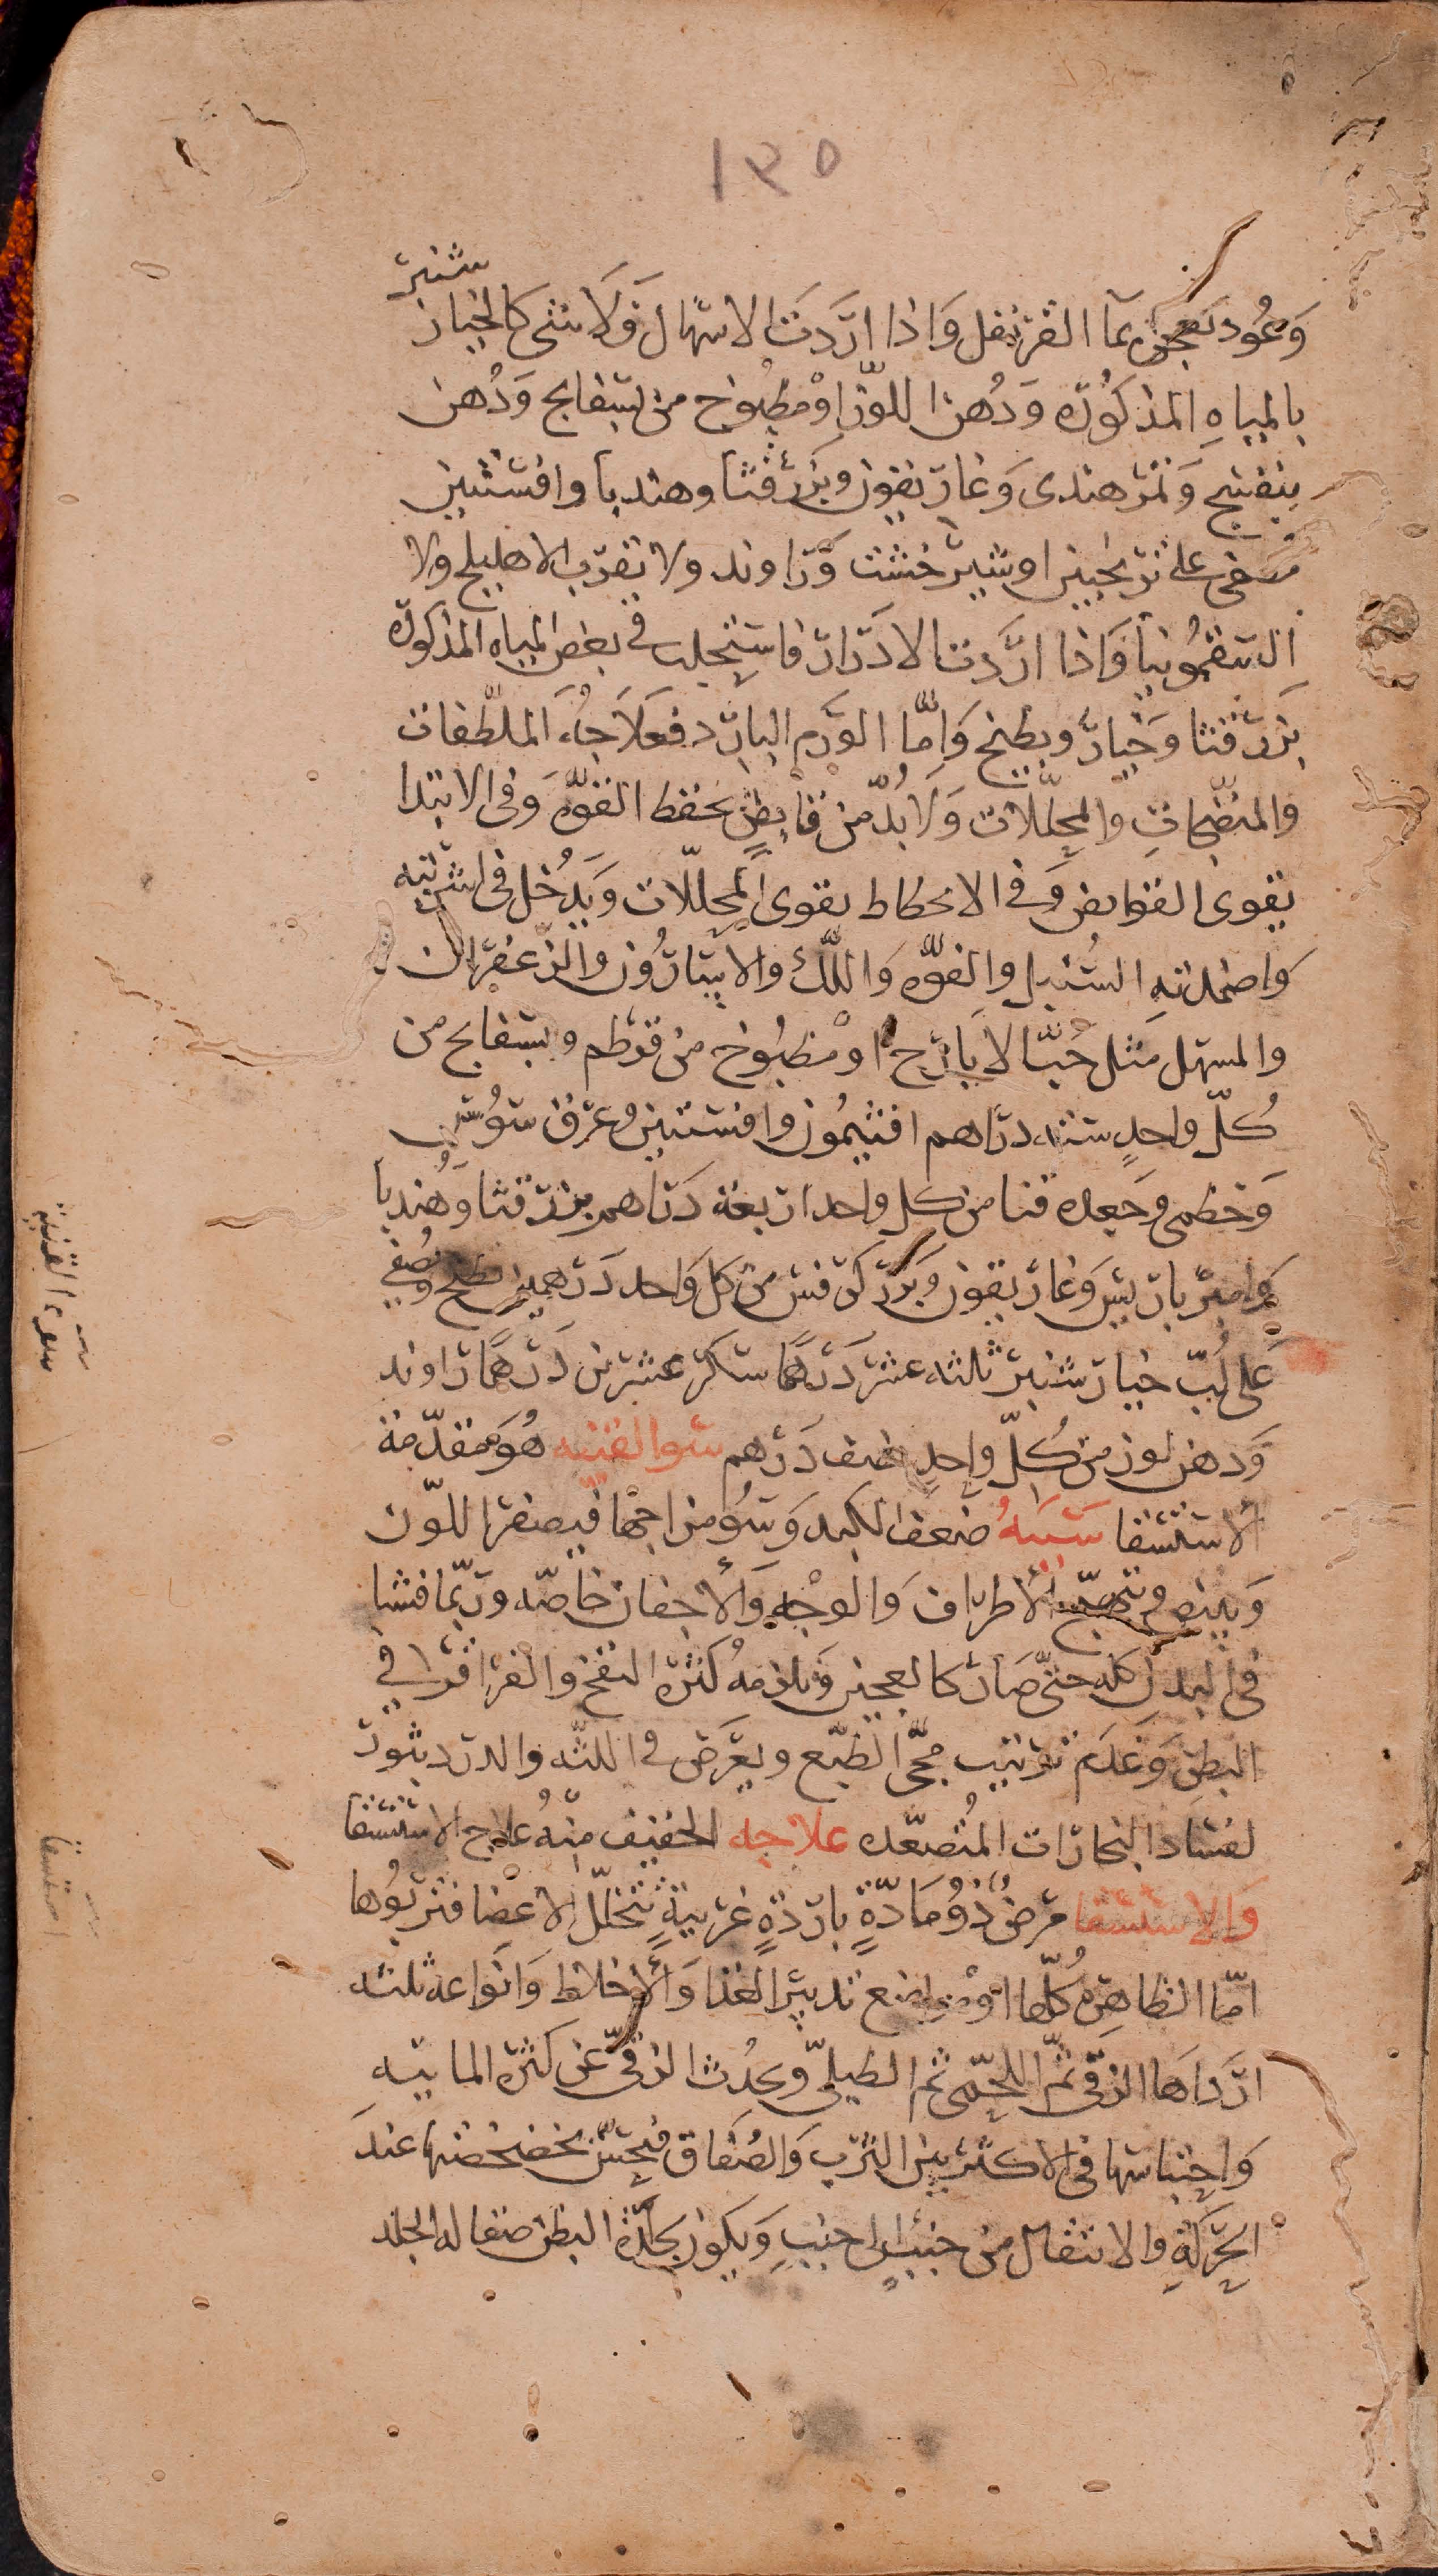 ١٣٥
وَعُود تعجن بمآ القرنفل وَاذا ارَدت الاسهال فَلا شى كالخيار شنبر
بالمياهِ المذكُورَه وَدُهن اللوز اوْ مطبُوخ من بسفايج وَدُهن
بنفسج وَتمر هندى وَغاريقون وبزر قثا وهندبا وافسنتين
مصفى على ترنجبين او شير خشت وَراوند ولا تقرب الاهليلج ولا
السقمُونيا وَاذا ارَدت الادرَار فاستجلب فى بعض المياه المذكورَه
بزر قثا وَخيار وبطيخ وَامّا الورَم البارد فعلاجُه الملطّفات
والمنضّجاتِ والمحلّلات وَلا بُدّ من قابِضٍ يحفظ القوّه وَفى الابتدا
يقوى القوابض وَفى الانحطاط يقوى المحلّلات وَيدخُل فى اشربته
وَاضمدته السُنبل والفوّه وَاللّك والاسارُون والزعفران
والمسهل مثل حُبّ الايارج اوْ مطبُوخ من قرطم وبسفايج من
كُلّ واحدٍ ستة دراهم افتيمُون وافسنتين وعرق سُوس
وَخطمى وَجعده قنا من كل واحد اربعة دَراهم بزر قثا وَهُندبا
وَامير باريس وَغاريقون وَبزر كرفس من كل وَاحد دَرهمين يطبخ ويُصفى
عَلى لُبّ خيار شنبر ثلثه عشر دَرهما سكر عشرين دَرهما راوند
وَدهن لوز من كُلّ واحدٍ نصف دَرهم سوالقنيه هُوَ مقدّمة
الاستسقا سَببهُ ضعف الكبد وَسُو مزاجها فيصفر اللون
وَيبيض وتهيّج الاطراف وَالوجهِ وَالأجفان خاصّه وربّما فشا
فى البدن كله حتّى صَار كالعجين وَيلزمهُ كثرة النفخ والقراقر فى
البطن وَعَدَم ترتيب مجى الطبع ويعرَض فى اللثه والدرد بثور
لفساد البخارات المُتصعّده علاجه الخفيف منهُ علاج الاستسقا
وَالاستسقا مرَضٌ ذُو مَادّةٍ بارِدةٍ غرَيبةٍ تتخلّل الاعضا فتربُوها
امّا الظاهِرَه كُلّها اوْ مواضع تدبير الغذا وَالأخلاط وَانوَاعه ثلثه
اردَاهَا الزقّى ثمّ اللحمّى ثم الطبلىّ وَيحدُث الزقىّ عن كثرة المايته
وَاحتباسها فى الاكثر بين الثرب وَالصُفَاق فيحسّ بخضخضتها عندَ
الحَركةِ والانتقال من جنبٍ الى جنبٍ وَيكون بجلدَة البطن صقاله الجلد
سوء القنية
استسقا